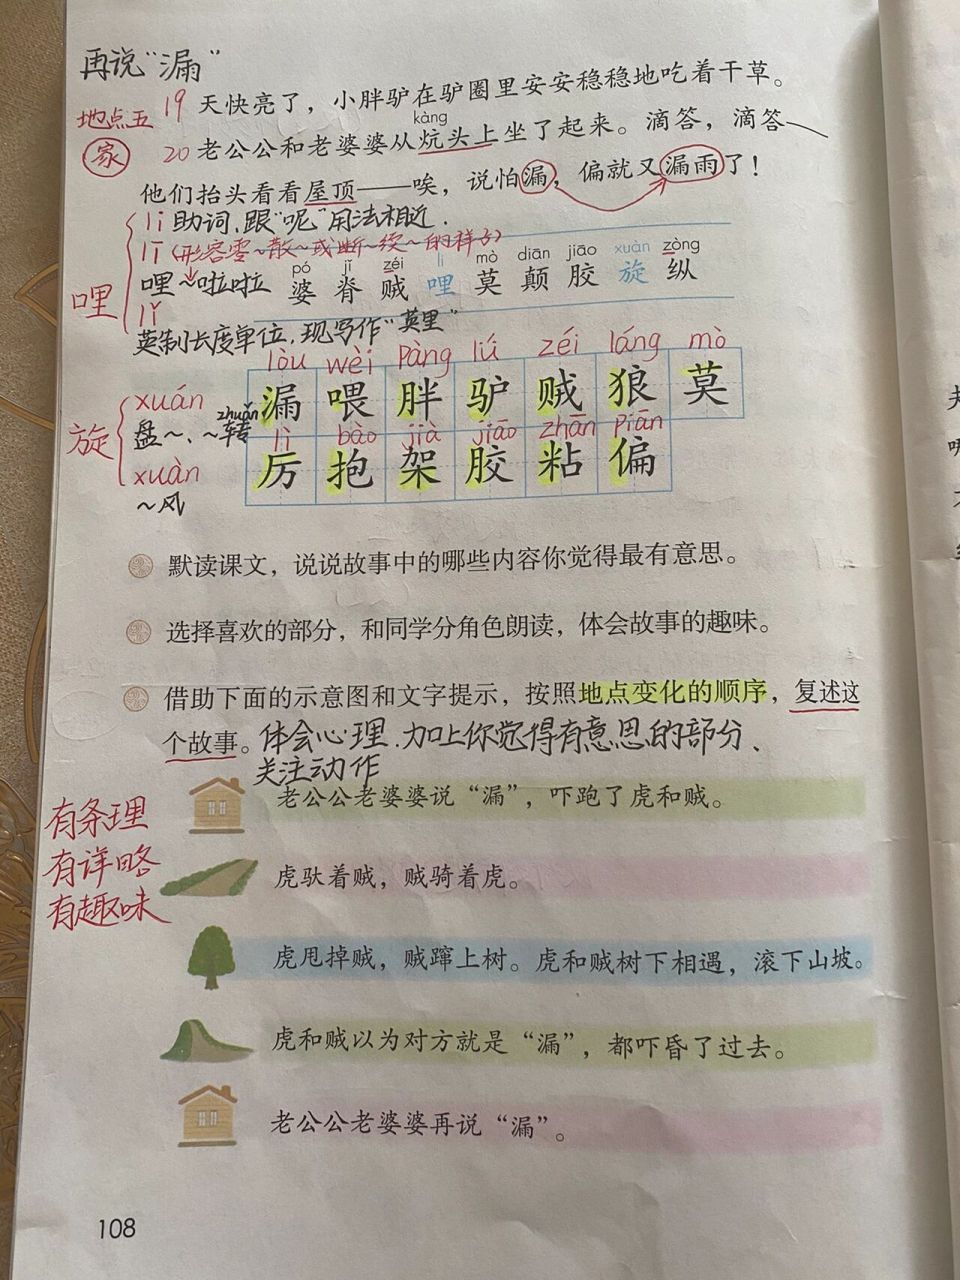 再说“漏”
地点五 19 天快亮了，小胖驴在驴圈里安安稳稳地吃着干草。
kàng
家 20 老公公和老婆婆从炕头上坐了起来。滴答，滴答——
他们抬头看看屋顶——唉，说怕漏，偏就又漏雨了！
li 助词，跟“呢”用法相近．
lī (形容零～散～或断～续～的样子)
pó jǐ zéi li mò diān jiāo xuàn zòng
哩～啦啦 婆 脊 贼 哩 莫 颠 胶 旋 纵
哩
lǐ
英制长度单位，现写作“英里”
lòu wèi pàng lǘ zéi láng mò
漏 喂 胖 驴 贼 狼 莫
xuán
盘～、～转
zhuǎn
旋
lì bào jià jiāo zhān piān
厉 抱 架 胶 粘 偏
xuàn
～风
默读课文，说说故事中的哪些内容你觉得最有意思。
选择喜欢的部分，和同学分角色朗读，体会故事的趣味。
借助下面的示意图和文字提示，按照地点变化的顺序，复述这
个故事。体会心理．加上你觉得有意思的部分、
关注动作
老公公老婆婆说“漏”，吓跑了虎和贼。
有条理
有详略
有趣味
虎驮着贼，贼骑着虎。
虎甩掉贼，贼蹿上树。虎和贼树下相遇，滚下山坡。
虎和贼以为对方就是“漏”，都吓昏了过去。
老公公老婆婆再说“漏”。
108